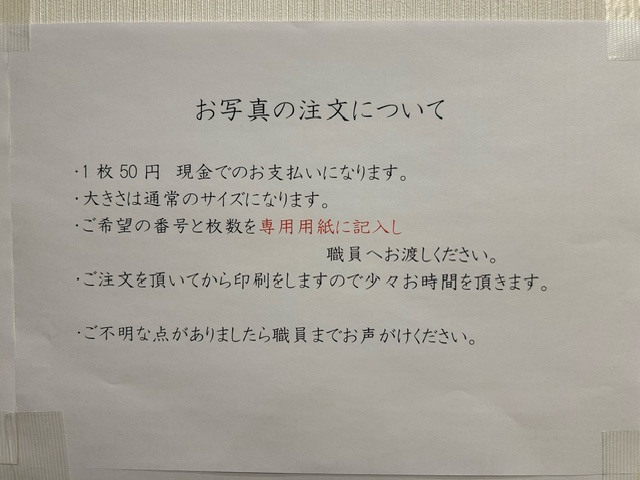 お写真の注文について
・1枚50円 現金でのお支払いになります。
・大きさは通常のサイズになります。
・ご希望の番号と枚数を専用用紙に記入し
職員へお渡しください。
・ご注文を頂いてから印刷をしますので少々お時間を頂きます。
・ご不明な点がありましたら職員までお声がけください。